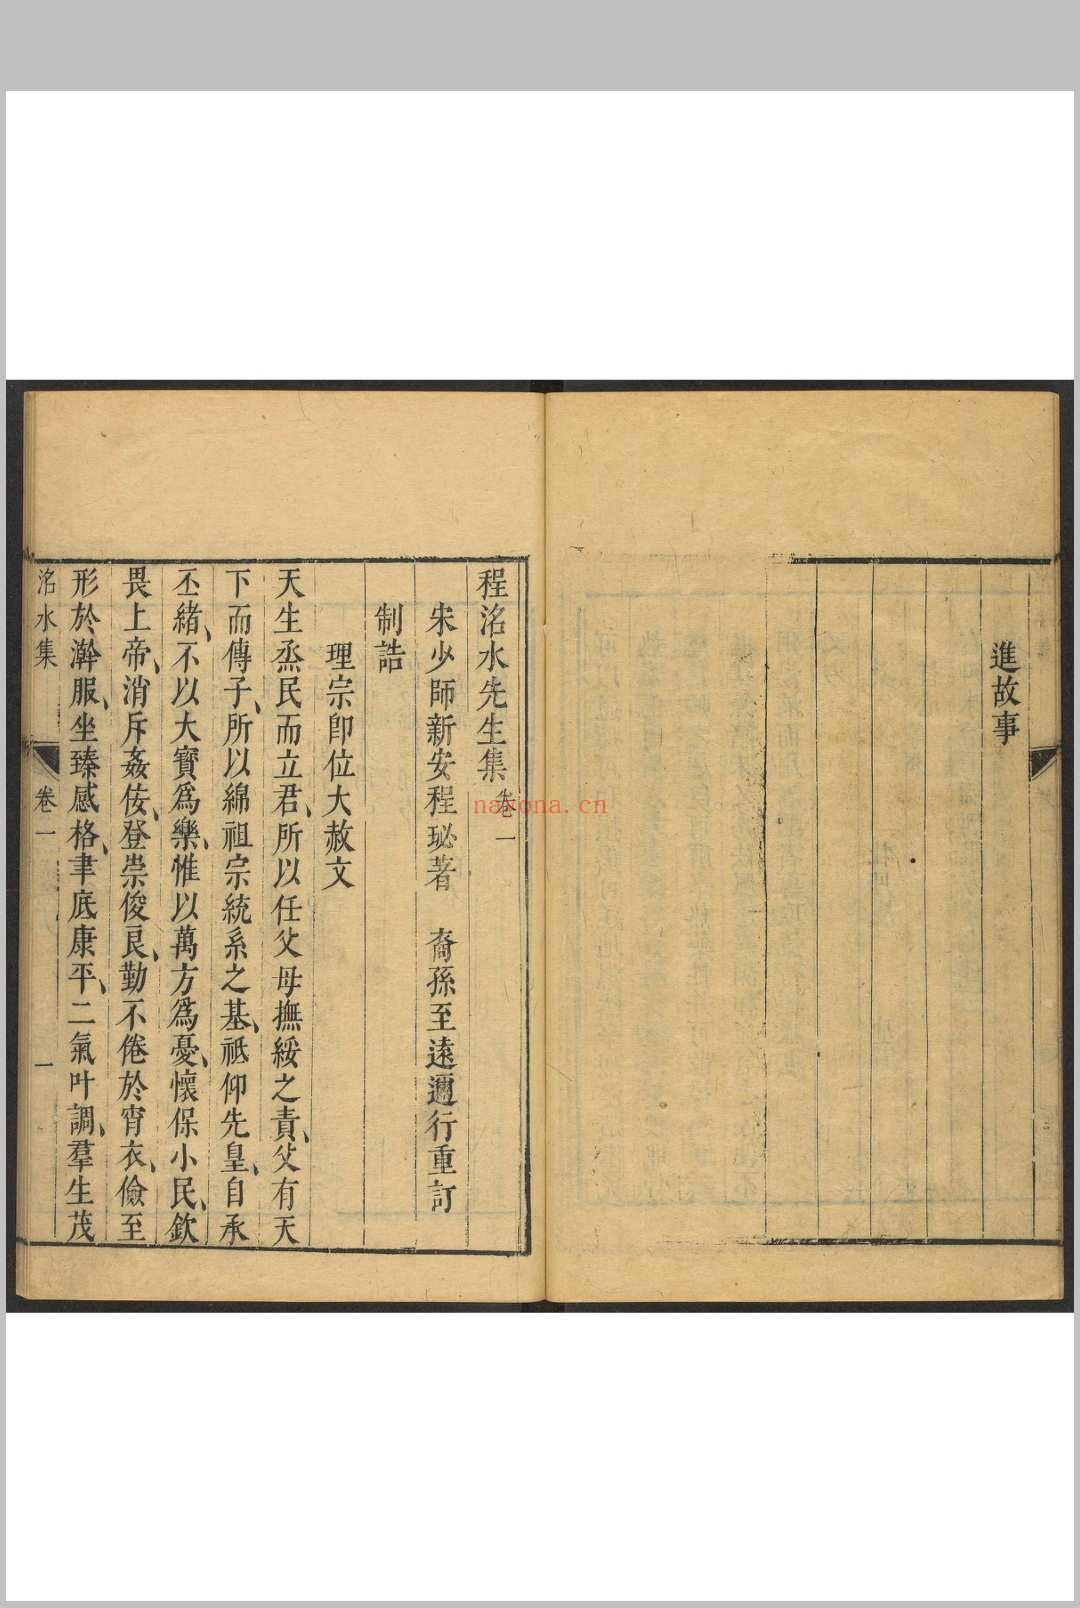 進故事
程洺水先生集卷一
宋少師新安程珌著　裔孫至遠邇行重訂
制誥
理宗即位大赦文
天生烝民而立君、所以任父母撫綏之責、父有天
下而傳子、所以綿祖宗統系之基、祗仰先皇、自承
丕緒、不以大寶爲樂、惟以萬方爲憂、懷保小民、欽
畏上帝、消斥姦佞、登崇俊良、勤不倦於宵衣、儉至
形於澣服、坐臻感格、聿底康平、二氣叶調、羣生茂
洺水集　卷一　一
navona.cn